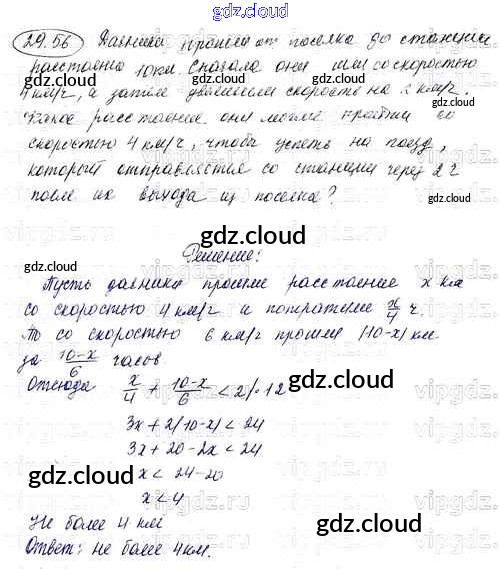 gdz.cloud
29.56 Дачники прошли от поселка до станции
расстояние 10 км. Сначала они шли со скоростью
4 км/ч, а затем увеличили скорость на 2 км/ч.
Какое расстояние они могли пройти со
скоростью 4 км/ч, чтобы успеть на поезд,
который отправляется со станции через 2 ч
после их выхода из поселка?
Решение:
Пусть дачники прошли расстояние x км
со скоростью 4 км/ч и потратили x/4 ч.
То со скоростью 6 км/ч прошли (10-x) км
за (10-x)/6 часов
Отсюда x/4 + (10-x)/6 < 2 | · 12
3x + 2(10-x) < 24
3x + 20 - 2x < 24
x < 24 - 20
x < 4
Не более 4 км
Ответ: не более 4 км.